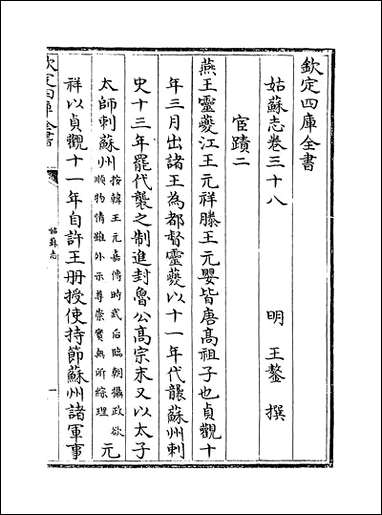 欽定四庫全書
姑蘇志卷三十八
明 王鏊 撰
宦蹟二
燕王靈夔江王元祥滕王元嬰皆唐高祖子也貞觀十
年三月出諸王為都督靈夔以十一年代襲蘇州刺
史十三年罷代襲之制進封魯公高宗末又以太子
太師刺蘇州按韓王元嘉傳時武后臨朝攝政欲
順物情雖外示尊崇實無所綜理元
祥以貞觀十一年自許王册授使持節蘇州諸軍事
欽定四庫全書
姑蘇志
一